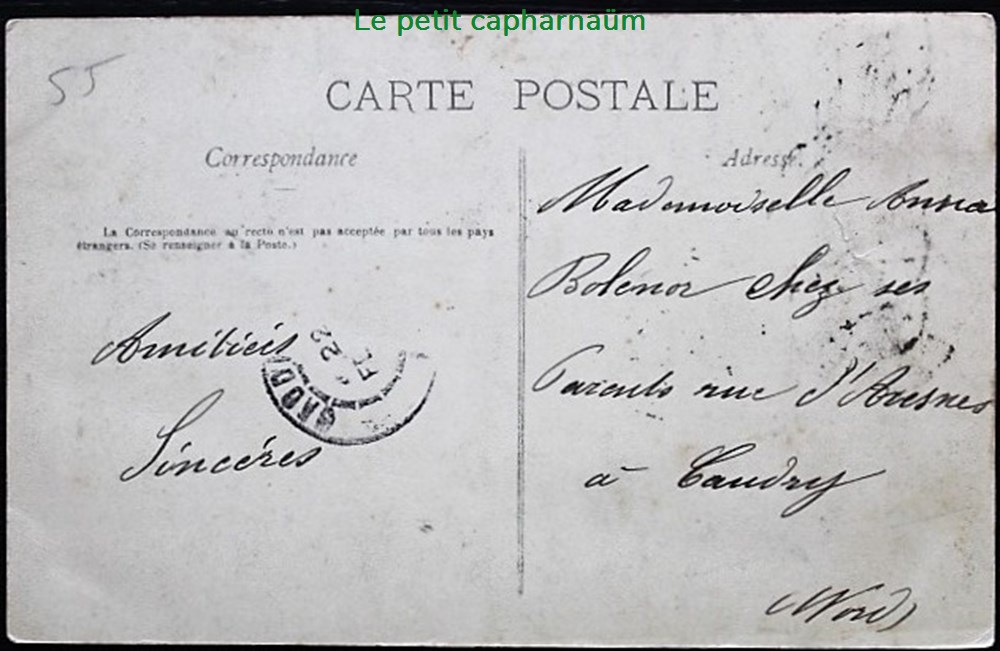 Le petit capharnaüm
55
CARTE POSTALE
Correspondance
Adresse
La Correspondance au recto n'est pas acceptée par tous les pays
étrangers. (Se renseigner à la Poste.)
Amitiés
Sincéres
22
FE
Mademoiselle Anna
Bolenor chez ses
Parents rue d'Avesnes
à Caudry
(Nord)